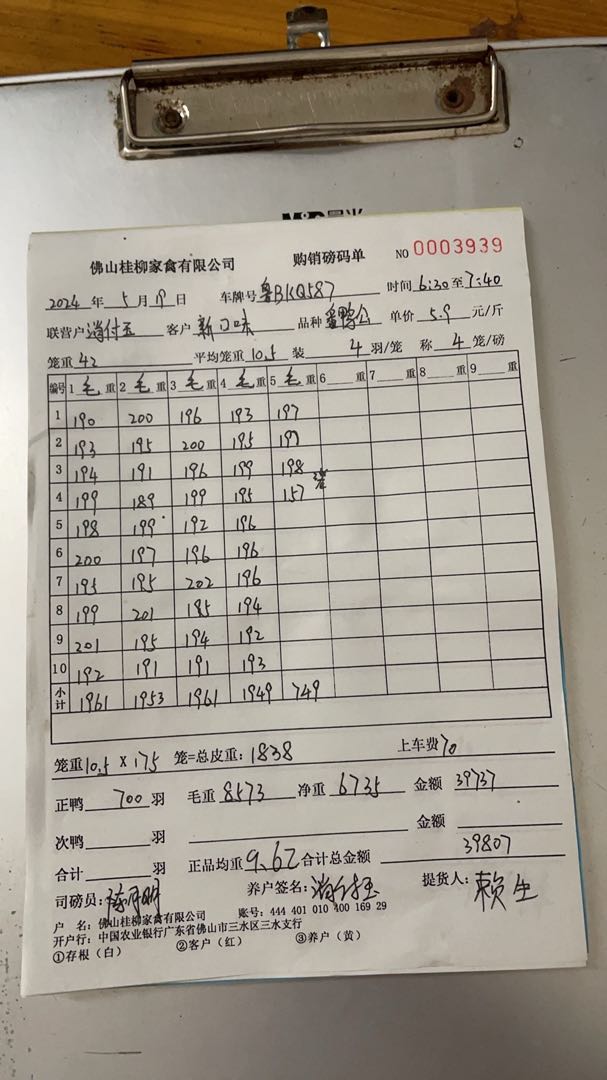 佛山桂柳家禽有限公司 购销磅码单 NO 0003939
2024 年 5 月 19 日 车牌号 鲁BKQ587 时间 6:30 至 7:40
联营户 付玉 客户 新口味 品种 番鸭公 单价 5.9 元/斤
笼重 42 平均笼重 10.5 装 4 羽/笼 称 4 笼/磅
编号 1 毛 重 2 毛 重 3 毛 重 4 毛 重 5 毛 重 6 重 7 重 8 重 9 重
1 190 200 196 193 197
2 193 195 200 195 197
3 194 191 196 199 198
4 199 189 199 195 157
5 198 199 192 196
6 200 197 196 196
7 195 195 202 196
8 199 201 195 194
9 201 195 194 192
10 192 191 191 193
小计 1961 1953 1961 1949 749
笼重 10.5 × 175 笼=总皮重: 1838 上车费 70
正鸭 700 羽 毛重 8573 净重 6735 金额 39737
次鸭 羽 金额
合计 羽 正品均重 9.62 合计总金额 39807
司磅员: 陈月明 养户签名: 付玉 提货人: 赖生
户 名: 佛山桂柳家禽有限公司 账号: 444 401 010 400 169 29
开户行: 中国农业银行广东省佛山市三水区三水支行
①存根（白） ②客户（红） ③养户（黄）